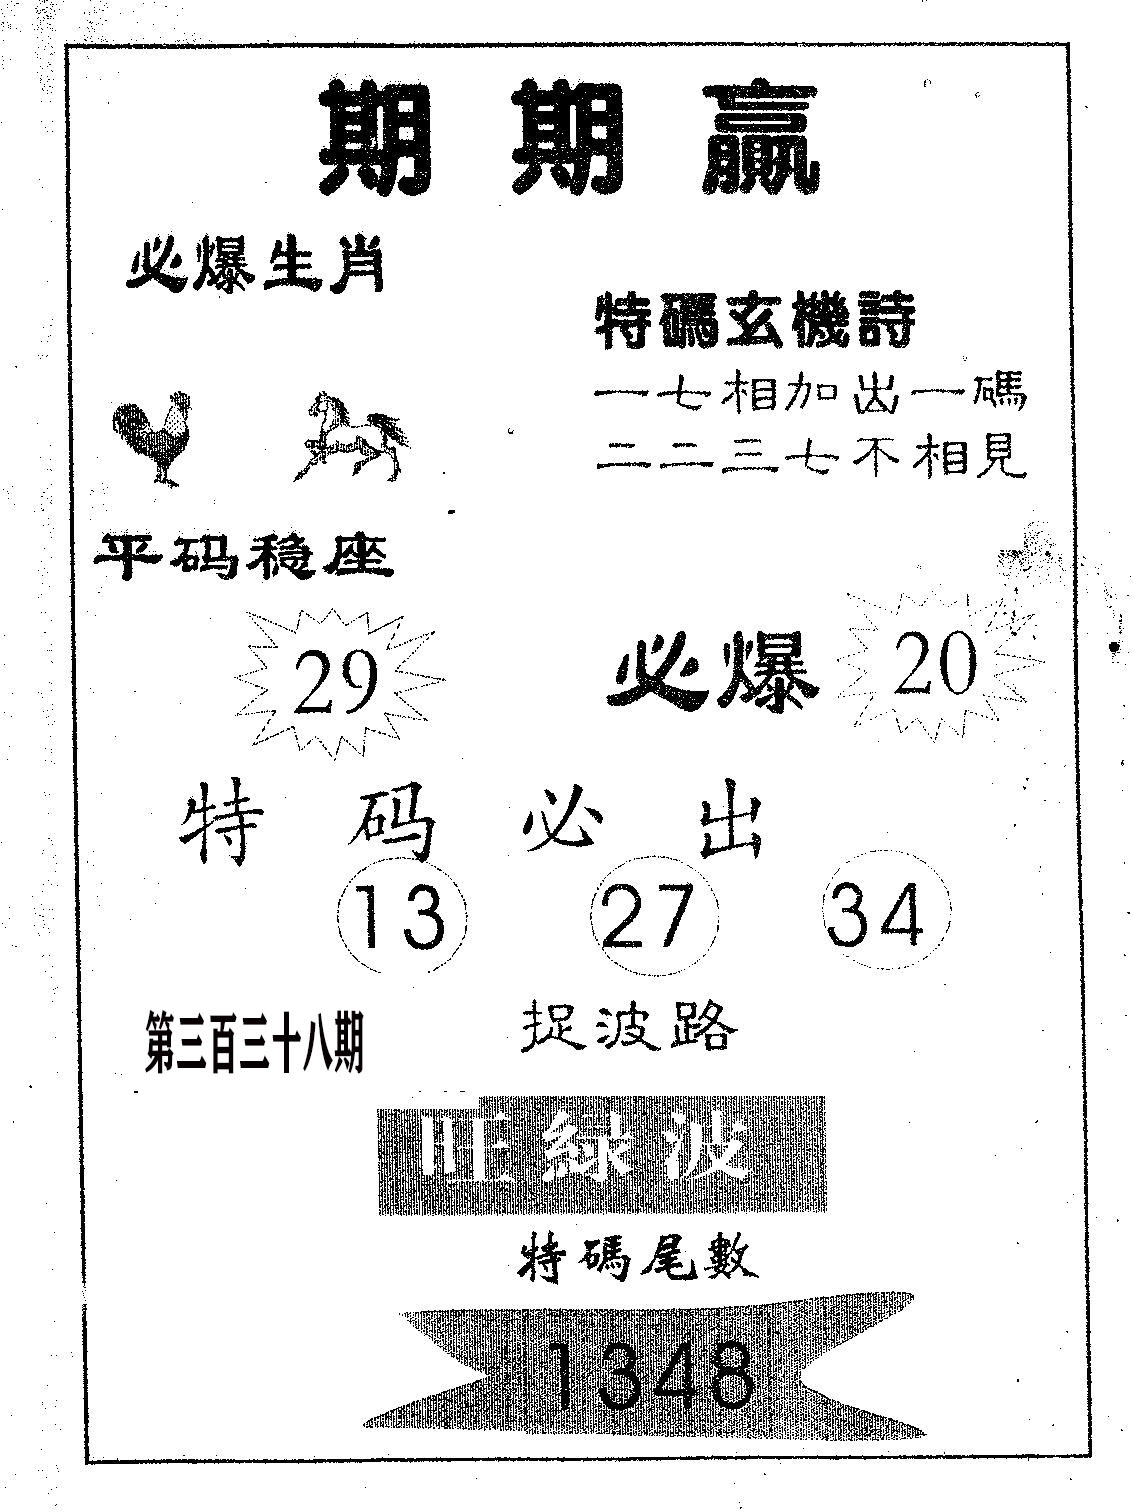 期期贏
必爆生肖
特碼玄機詩
一七相加出一碼
二二三七不相見
平码稳座
29
必爆 20
特码必出
13 27 34
第三百三十八期
捉波路
旺綠波
特碼尾數
1348